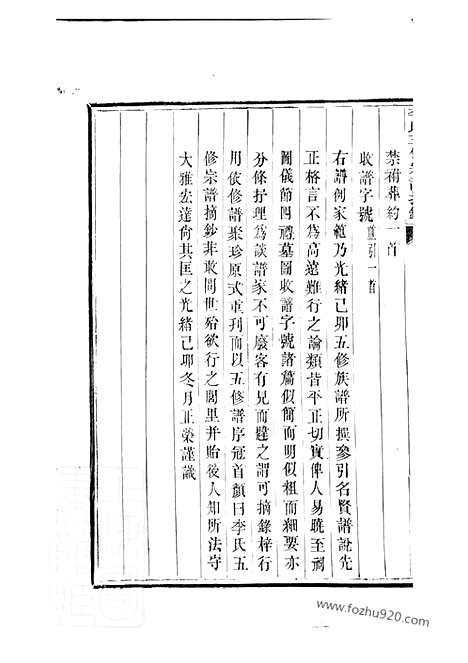 禁祔葬約一首
收譜字號並引一首
右譜例家範乃光緒己卯五修族譜所撰參引名賢譜說先
正格言不為高遠難行之論類皆平正切實俾人易曉至祠
圖儀節四禮墓圖收譜字號諸篇似簡而明似粗而細要亦
分條抒理為談譜家不可廢客有見而韙之謂可摘錄梓行
用依修譜聚珍原式重刊而以五修譜序冠首顏曰李氏五
修宗譜摘鈔非敢問世殆欲行之閭里并貽後人知所法守
大雅宏達尚其匡之光緒己卯冬月正榮謹識
www.fozhu920.com